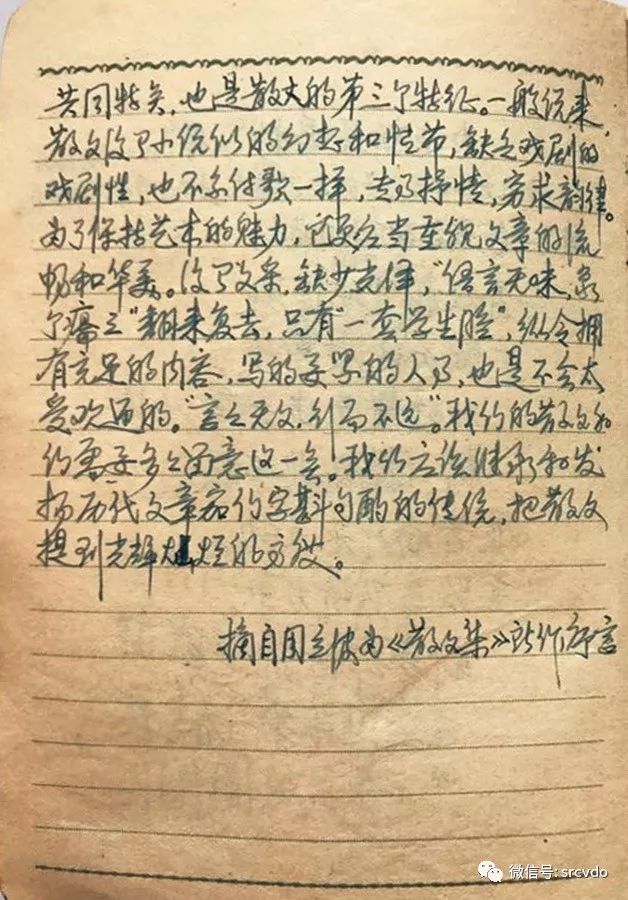 共同特点,也是散文的第三个特征。一般说来,
散文没了小说似的幻想和情节,缺乏戏剧的
戏剧性,也不象诗歌一样,专乃抒情,穷求韵律。
为了保持艺术的魅力,它更应当重视文章的流
畅和华美。没了文采,缺少克佯,“语言无味,象
个瘪三”翻来复去,只有“一套学生脸”,纵令拥
有充足的内容,写的妥帖的人乃,也是不会太
受欢迎的。“言之无文,行而不远”。我们的散文和
们需要多多留意这一点。我们应该继承和发
扬历代文章家们字斟句酌的传统,把散文
提到光辉灿烂的高
摘自周立波为《散文集》所作序言
微信号: srcvdo